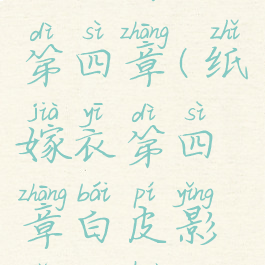 dì sì zhāng zhǐ
第四章(纸
jià yī dì sì
嫁衣第四
zhāng bái pí yǐng
章白皮影